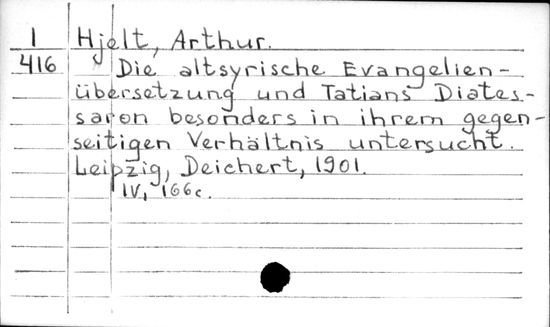 1 Hjelt, Arthur.
416 Die altsyrische Evangelien-
übersetzung und Tatians Diates-
saron besonders in ihrem gegen-
seitigen Verhältnis untersucht.
Leipzig, Deichert, 1901.
IV, 166c.